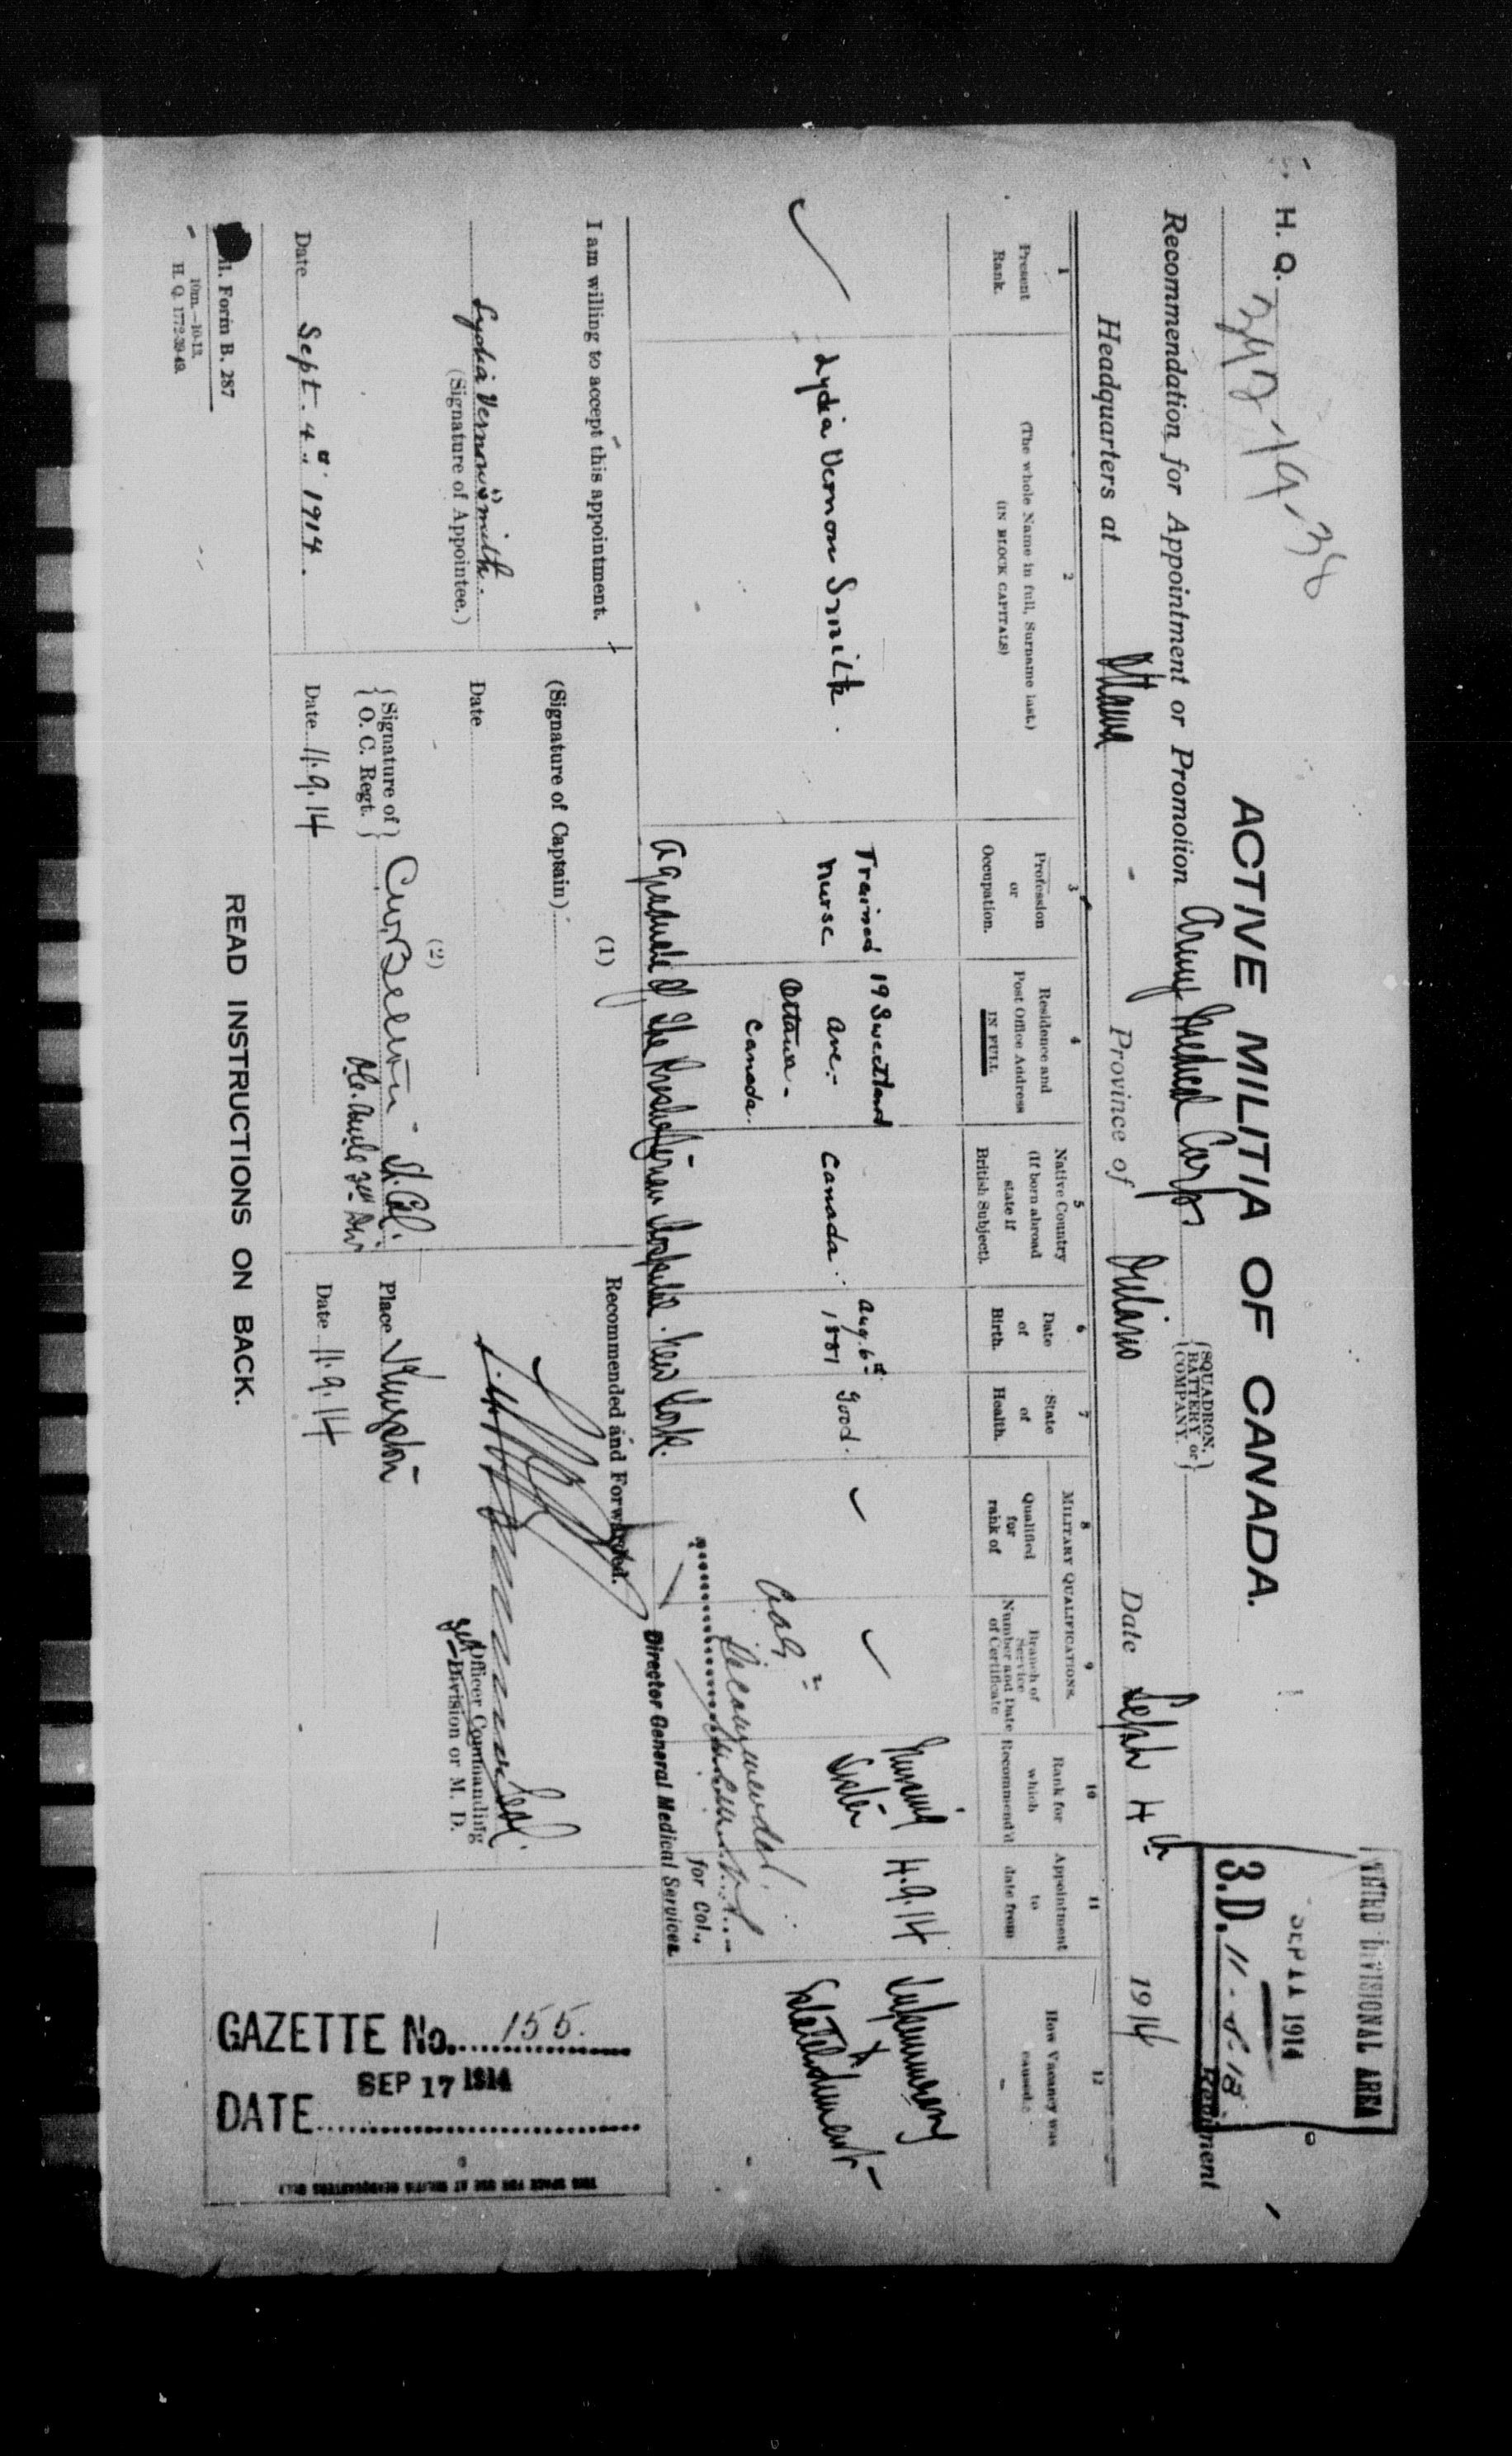 H. Q. 392-19-38
THIRD DIVISIONAL AREA
SEP 11 1914
3.D. 11-S-18
ACTIVE MILITIA OF CANADA.
Recommendation for Appointment or Promotion Army Medical Corps {SQUADRON, BATTERY or COMPANY.} Regiment
Headquarters at Ottawa Province of Ontario Date Sept 4th 1914
1
Present
Rank.
2
(The whole Name in full, Surname last.)
(IN BLOCK CAPITALS)
3
Profession
or
Occupation.
4
Residence and
Post Office Address
IN FULL
5
Native Country
(If born abroad
state if
British Subject).
6
Date
of
Birth.
7
State
of
Health.
MILITARY QUALIFICATIONS.
8
Qualified
for
rank of
9
Branch of
Service
Number and Date
of Certificate
10
Rank for
which
Recommend'd
11
Appointment
to
date from
12
How Vacancy was
caused.
Lydia Vernon Smith.
Trained
Nurse
19 Sweetland
Ave.-
Ottawa-
Canada.
Canada.
Aug. 6th
1881
Good.
Nursing
Sister
4.9.14
Supernumerary
to
Establishment-
A graduate of the Presbyterian Hospital. New York.
Recommended.
for Col.,
Director General Medical Services
I am willing to accept this appointment.
Lydia Vernon Smith.
(Signature of Appointee.)
Date Sept. 4th 1914.
(1)
(Signature of Captain)
Date
(2)
{Signature of
O. C. Regt.} Lt. Col.
Date 11.9.14
Recommended and Forwarded.
Officer Commanding
3rd Division or M. D.
Place Kingston
Date 11.9.14
GAZETTE No. 155.
SEP 17 1914
DATE
THIS SPACE FOR USE AT MILITIA HEADQUARTERS ONLY
Form B. 287
10m.-10-13.
H. Q. 1772-39-49.
READ INSTRUCTIONS ON BACK.